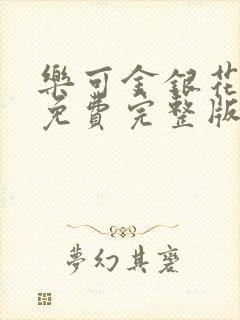 樂可金銀花
免費完整版
夢幻其麼